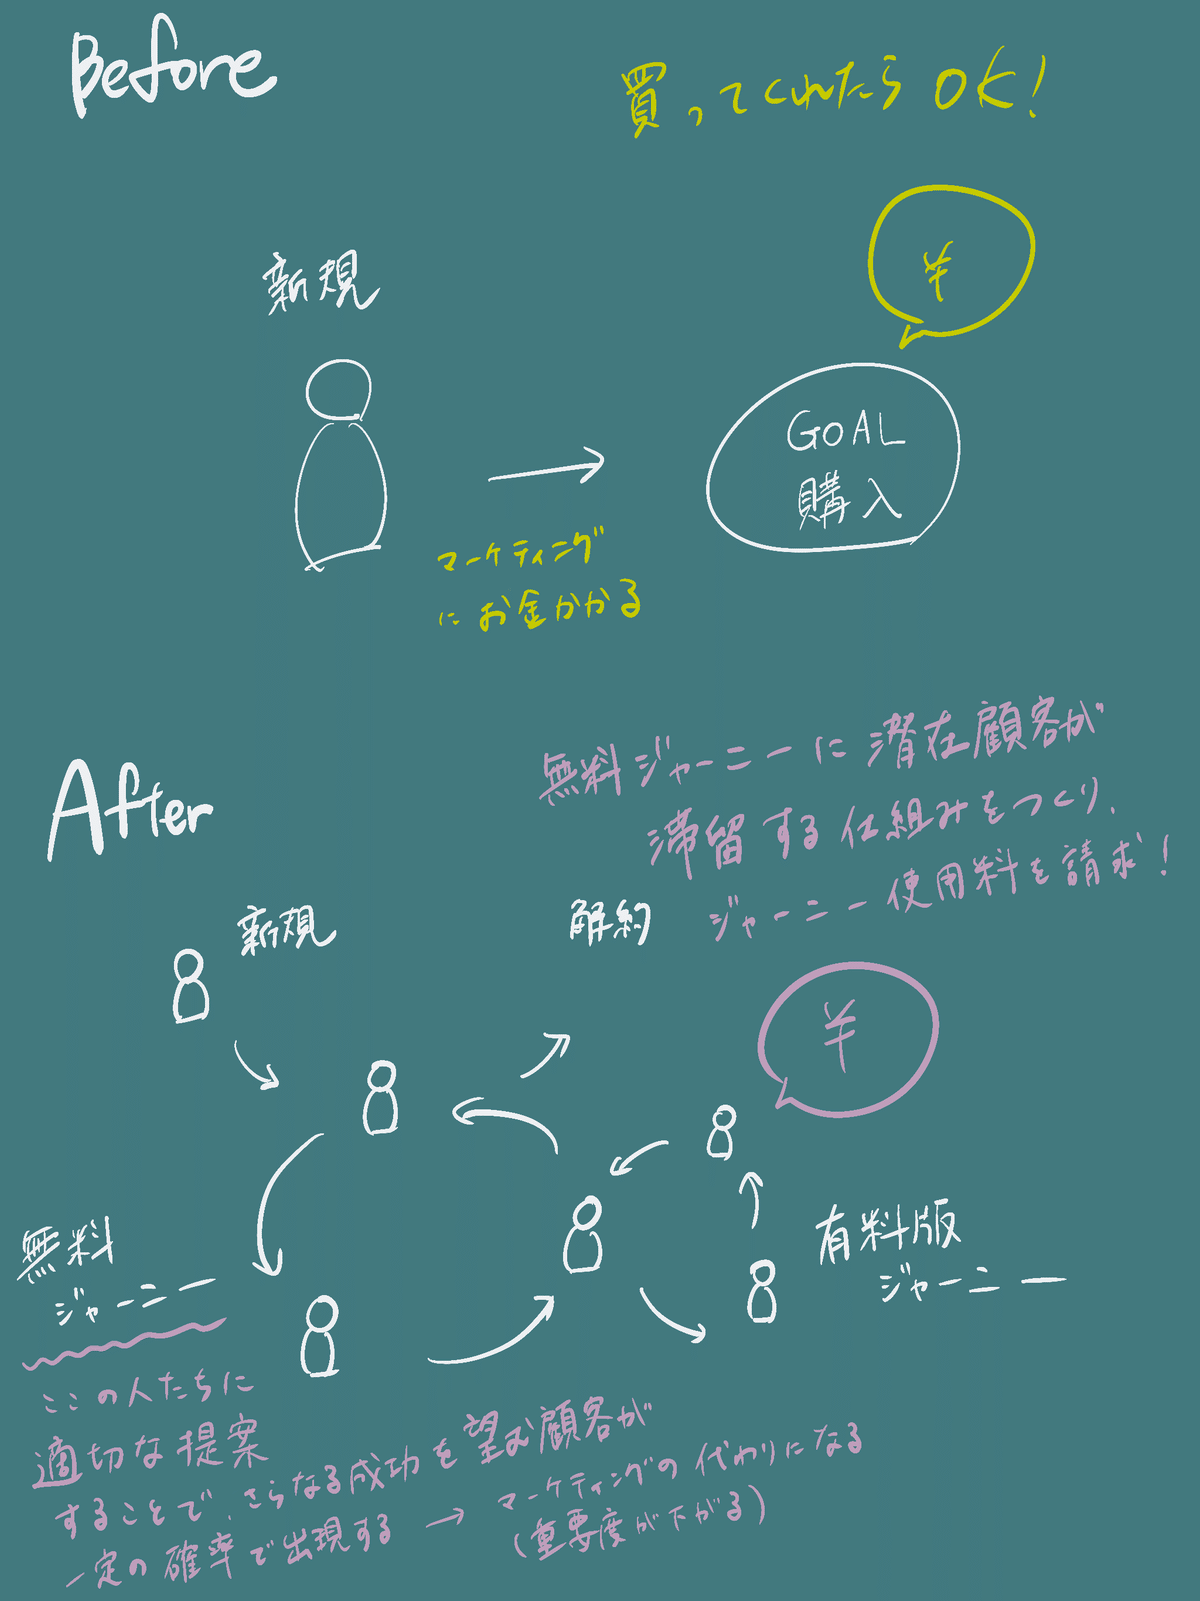 Before
買ってくれたらOK!
新規
¥
GOAL
購入
マーケティング
にお金かかる
After
無料ジャーニーに潜在顧客が
滞留する仕組みをつくり、
ジャーニー使用料を請求!
新規
解約
¥
無料
ジャーニー
有料版
ジャーニー
ここの人たちに
適切な提案
することで、さらなる成功を望む顧客が
一定の確率で出現する → マーケティングの代わりになる
(重要度が下がる)